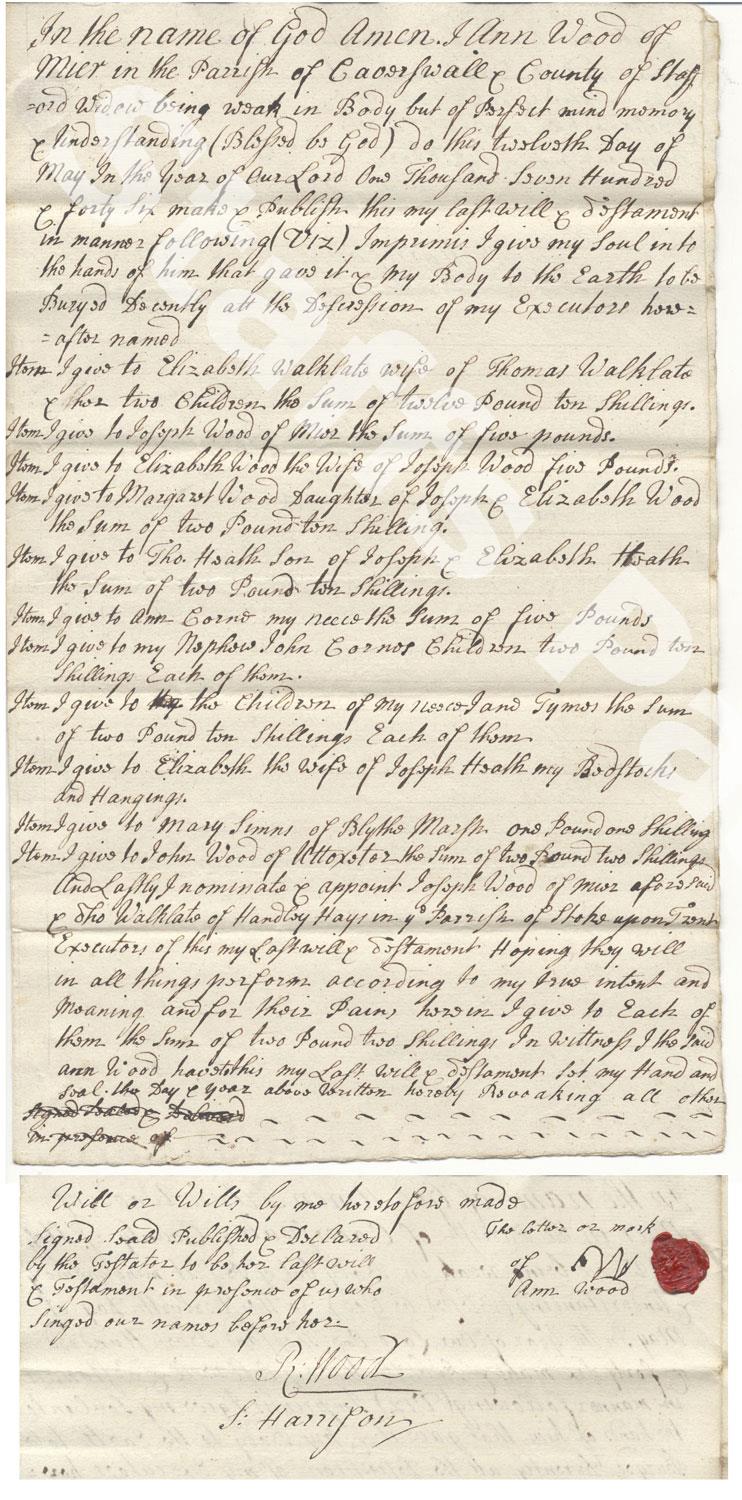 In the name of God Amen. I Ann Wood of
Mier in the Parrish of Caverswall & County of Staff
=ord Widow being weak in Body but of Perfect mind memory
& Understanding (Blessed be God) do this twelveth Day of
May In the Year of Our Lord One Thousand Seven Hundred
& forty Six make & Publish this my last will & Testament
in manner following (Viz) Imprimis I give my Soul in to
the hands of him that gave it & my Body to the Earth to be
Buryed Decently att the Descression of my Executors here=
=after named
Item I give to Elizabeth Walklate wife of Thomas Walklate
& her two Children the Sum of twelve Pound ten Shillings.
Item I give to Joseph Wood of Mier the Sum of five pounds.
Item I give to Elizabeth Wood the Wife of Joseph Wood five Pounds.
Item I give to Margaret Wood Daughter of Joseph & Elizabeth Wood
the Sum of two Pound ten Shilling.
Item I give to Tho. Heath Son of Joseph & Elizabeth Heath
the Sum of two Pound ten Shillings.
Item I give to Ann Corne my neece the Sum of five Pounds
Item I give to my Nephew John Cornes Children two Pound ten
Shillings Each of them.
Item I give to the Children of my neece Jand Tymes the Sum
of two Pound ten Shillings Each of them
Item I give to Elizabeth the wife of Joseph Heath my Bedstocks
and Hangings.
Item I give to Mary Simns of Blythe Marsh one Pound one Shilling
Item I give to John Wood of Uttoxeter the Sum of two Pound two Shillings
And Lastly I nominate & appoint Joseph Wood of Mier aforesaid
& Tho Walklate of Handley Hays in ye Parrish of Stoke upon Trent
Executors of this my Last will & Testament Hoping they will
in all things perform according to my true intent and
Meaning and for their Pains herein I give to Each of
them the Sum of two Pound two Shillings In Wittness I the said
Ann Wood have to this my Last will & Testament Set my Hand and
Seal the Day & year above written hereby Revoaking all other
Signed Sealed & Delivered
in presence of
Will or Wills by me heretofore made
Signed Seald Published & Declared
by the Testator to be her last will
& Testament in presence of us who
Singed our names before her.
The letter or mark
of W
Ann Wood
R: Wood
S: Harrison